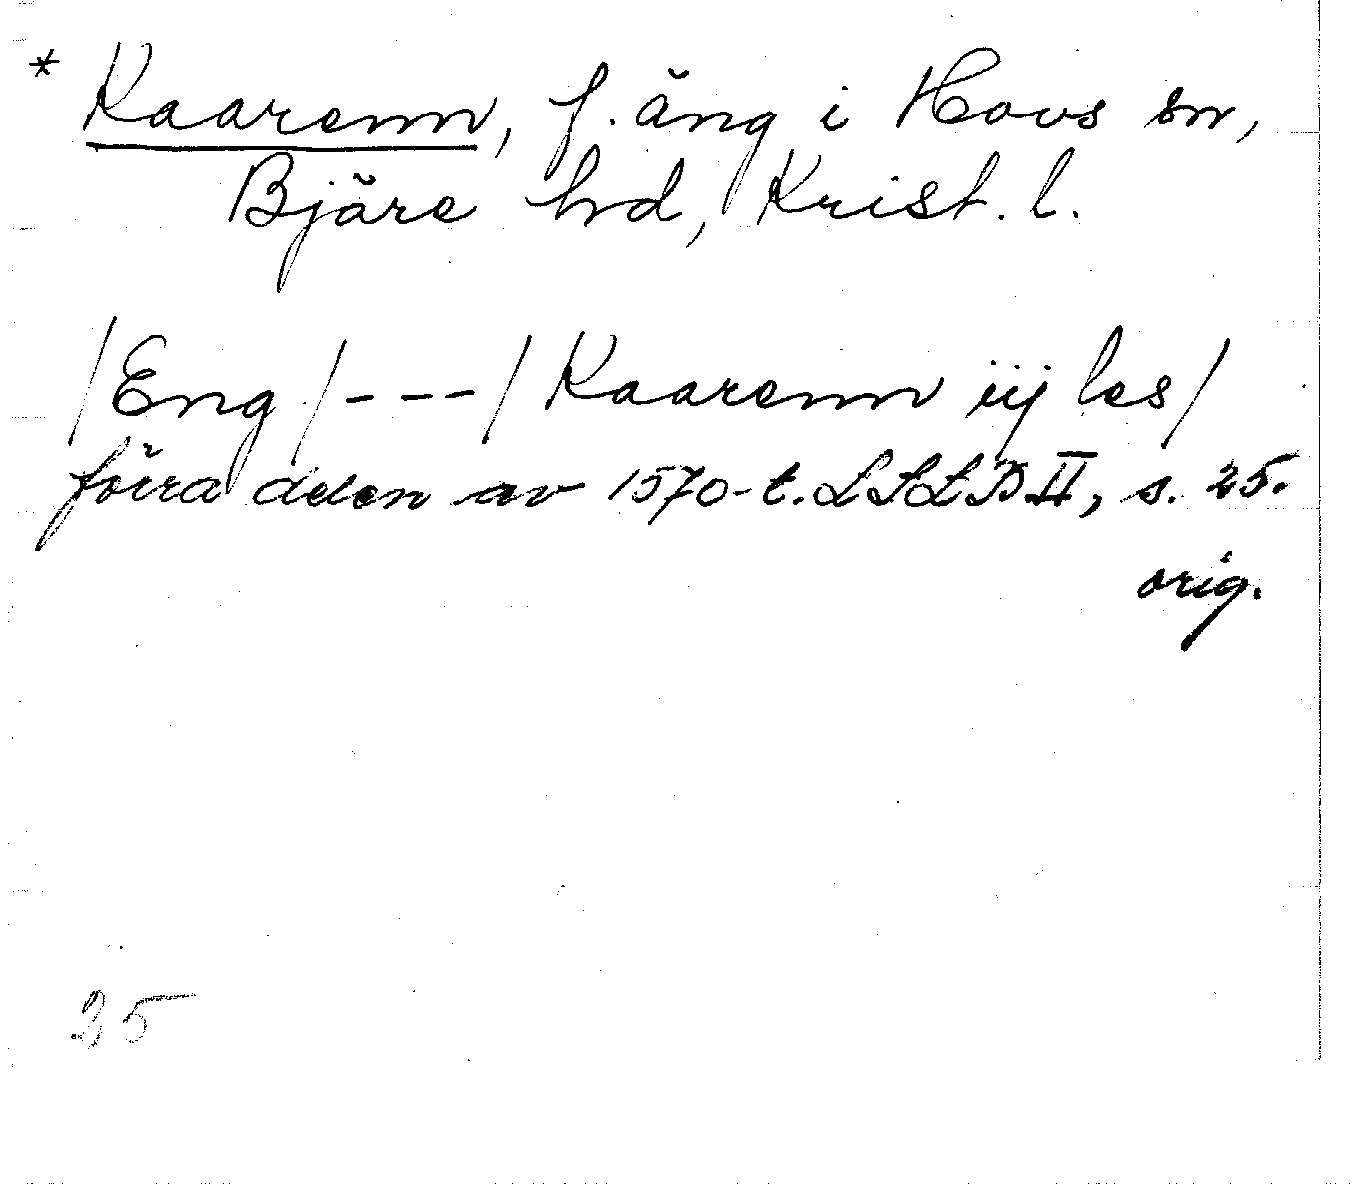 * Kaarenn, f. äng i Hovs sn,
Bjäre hd, Krist. l.
/Eng/---/Kaarenn iij les/
förra delen av 1570-t. LSLP II, s. 25.
orig.
25